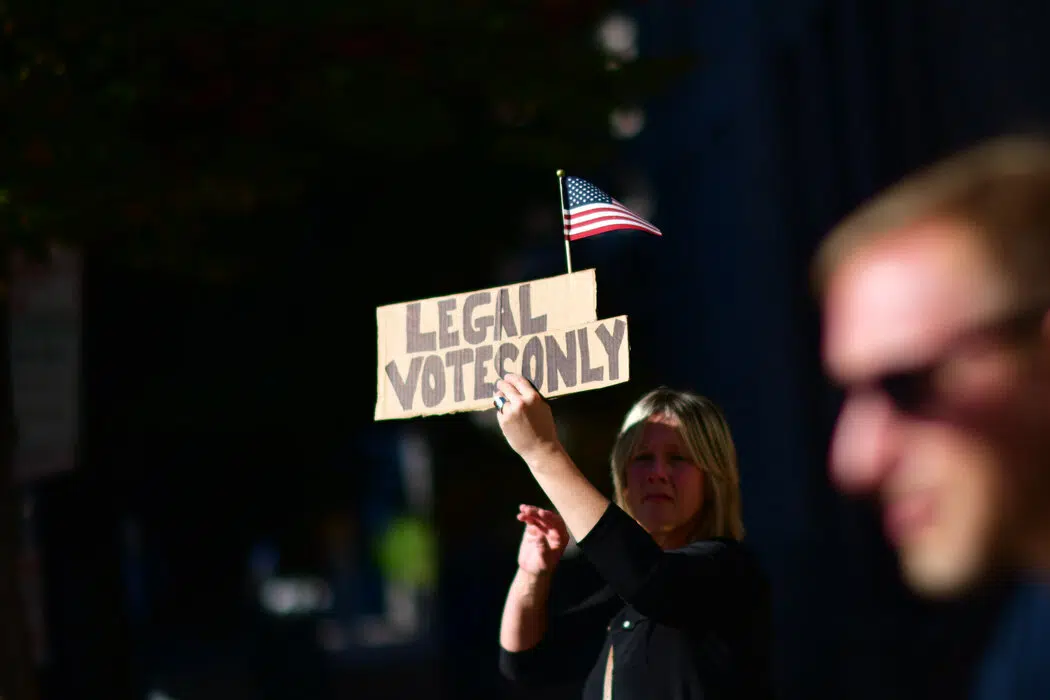 LEGAL
VOTES ONLY